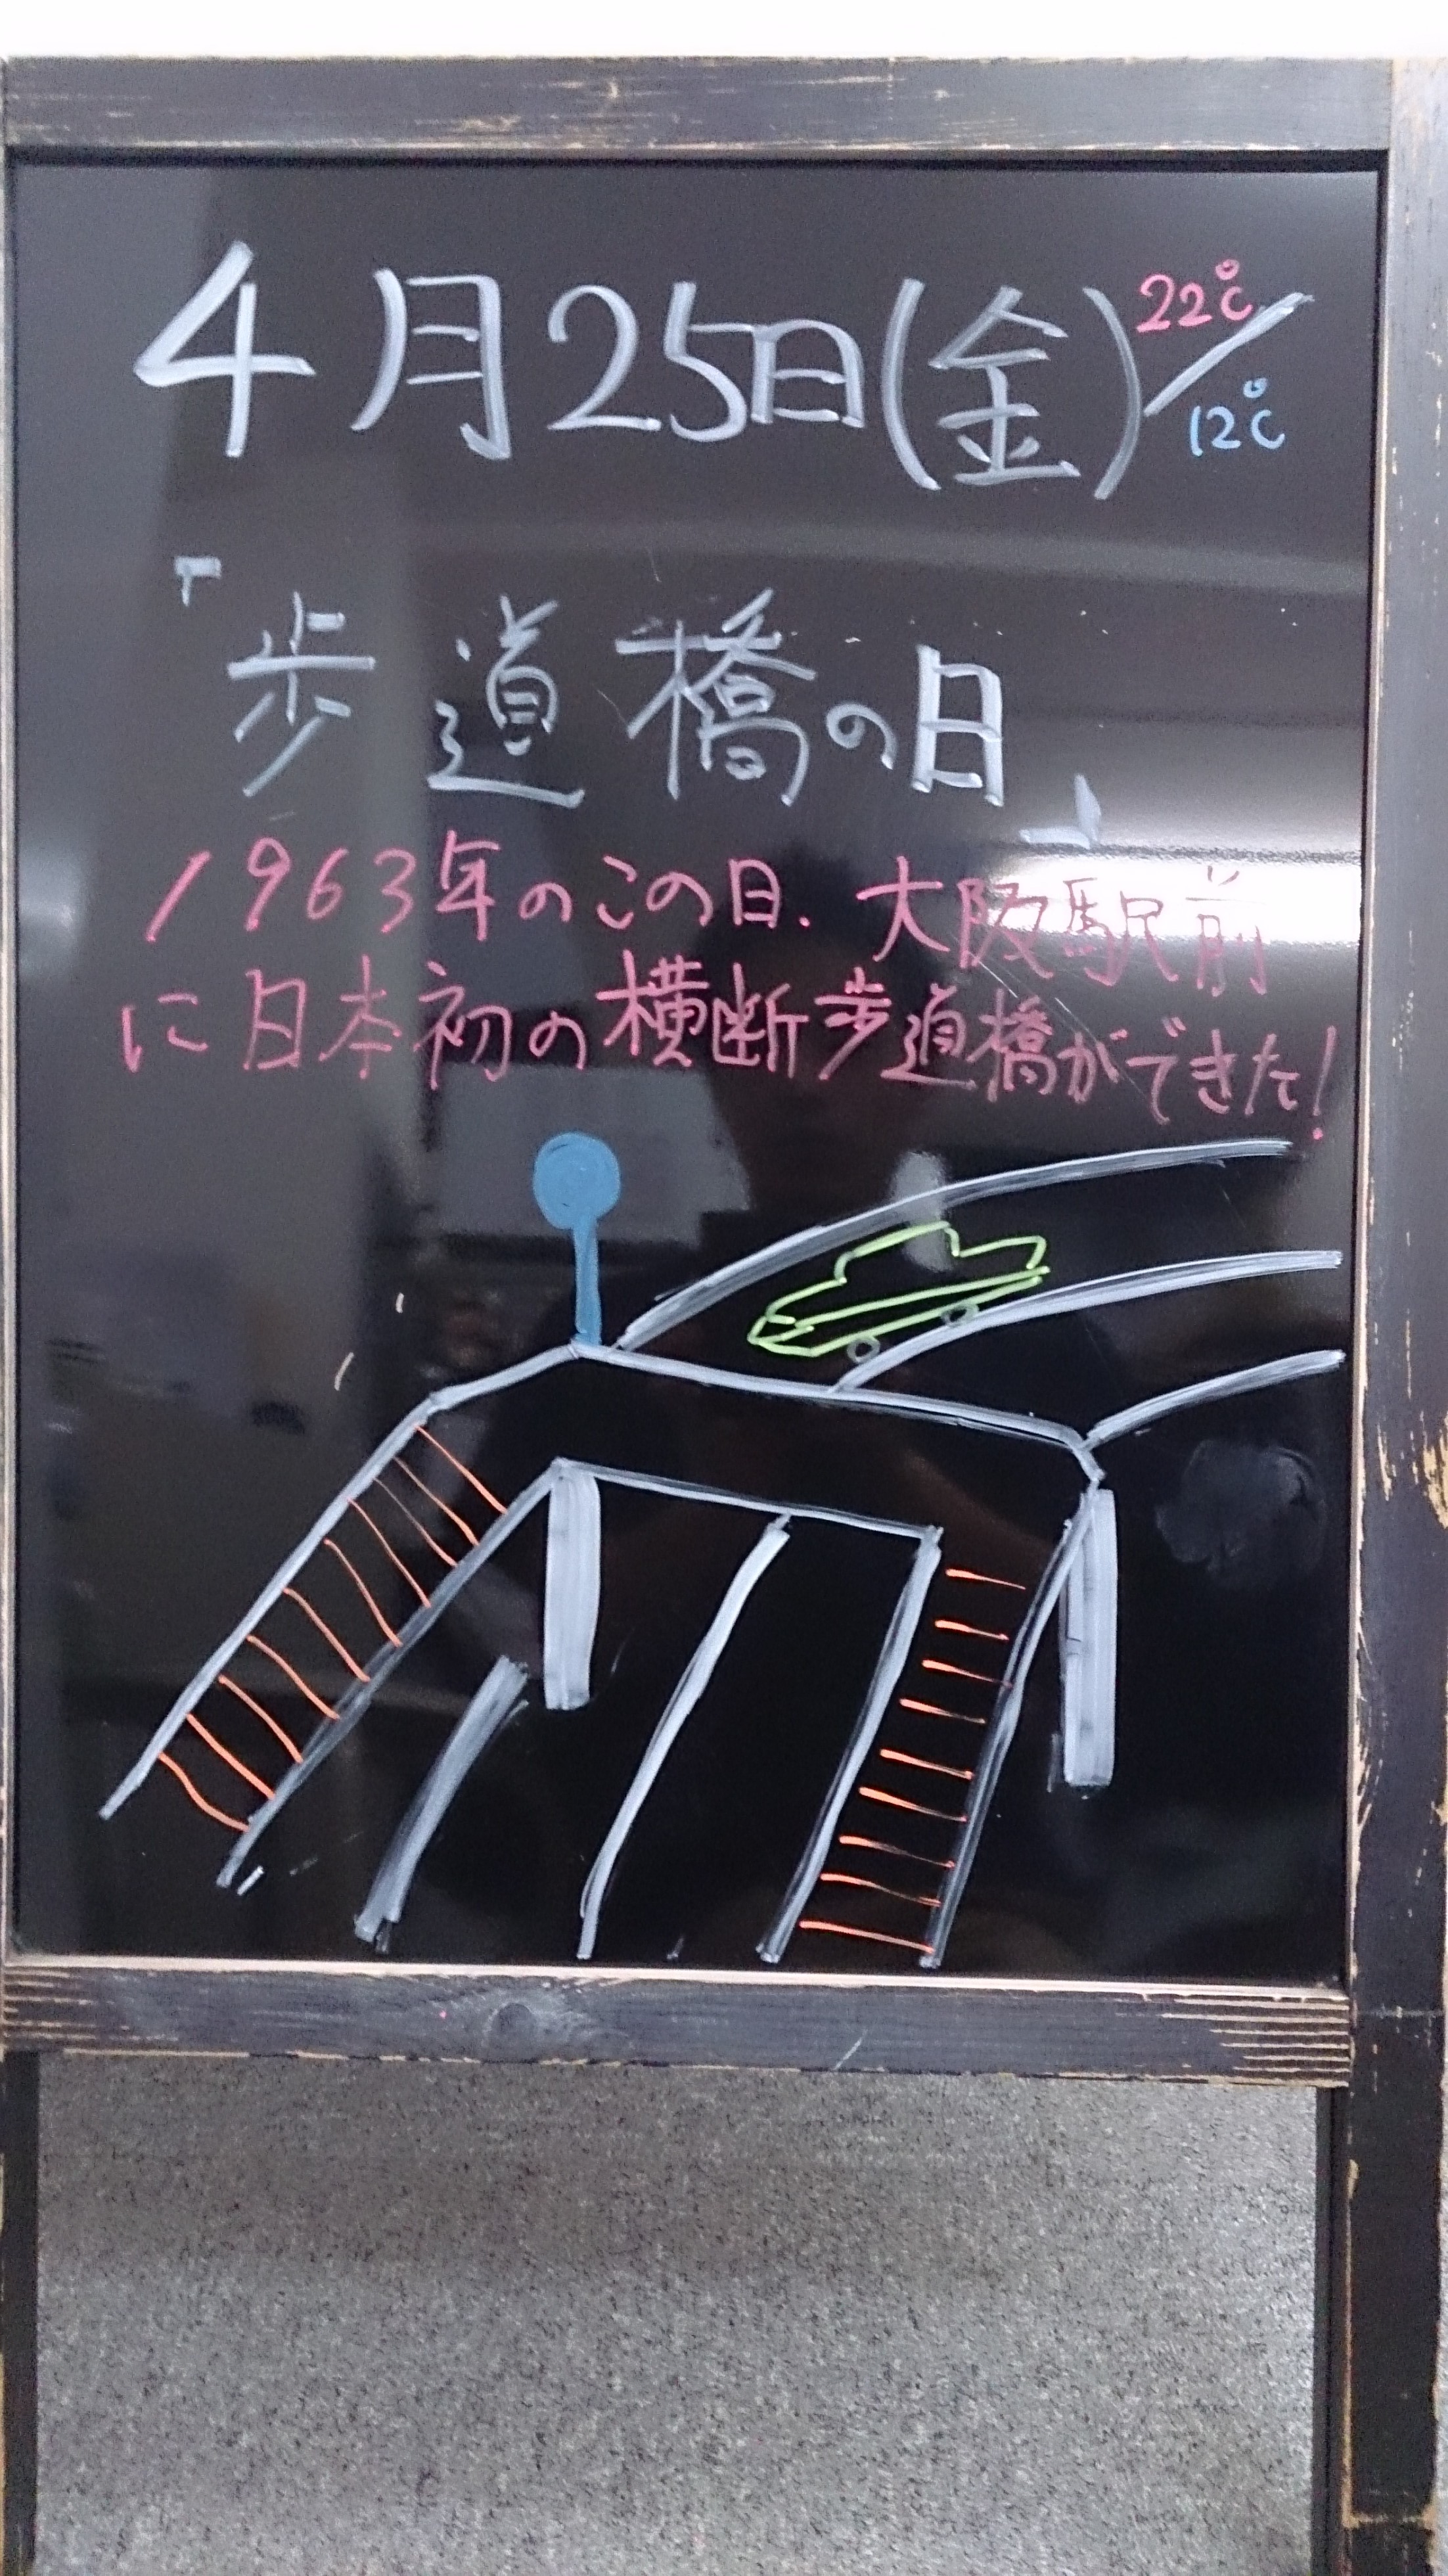 4月25日(金) 22℃/12℃
「歩道橋の日」
1963年のこの日、大阪駅前
に日本初の横断歩道橋ができた!